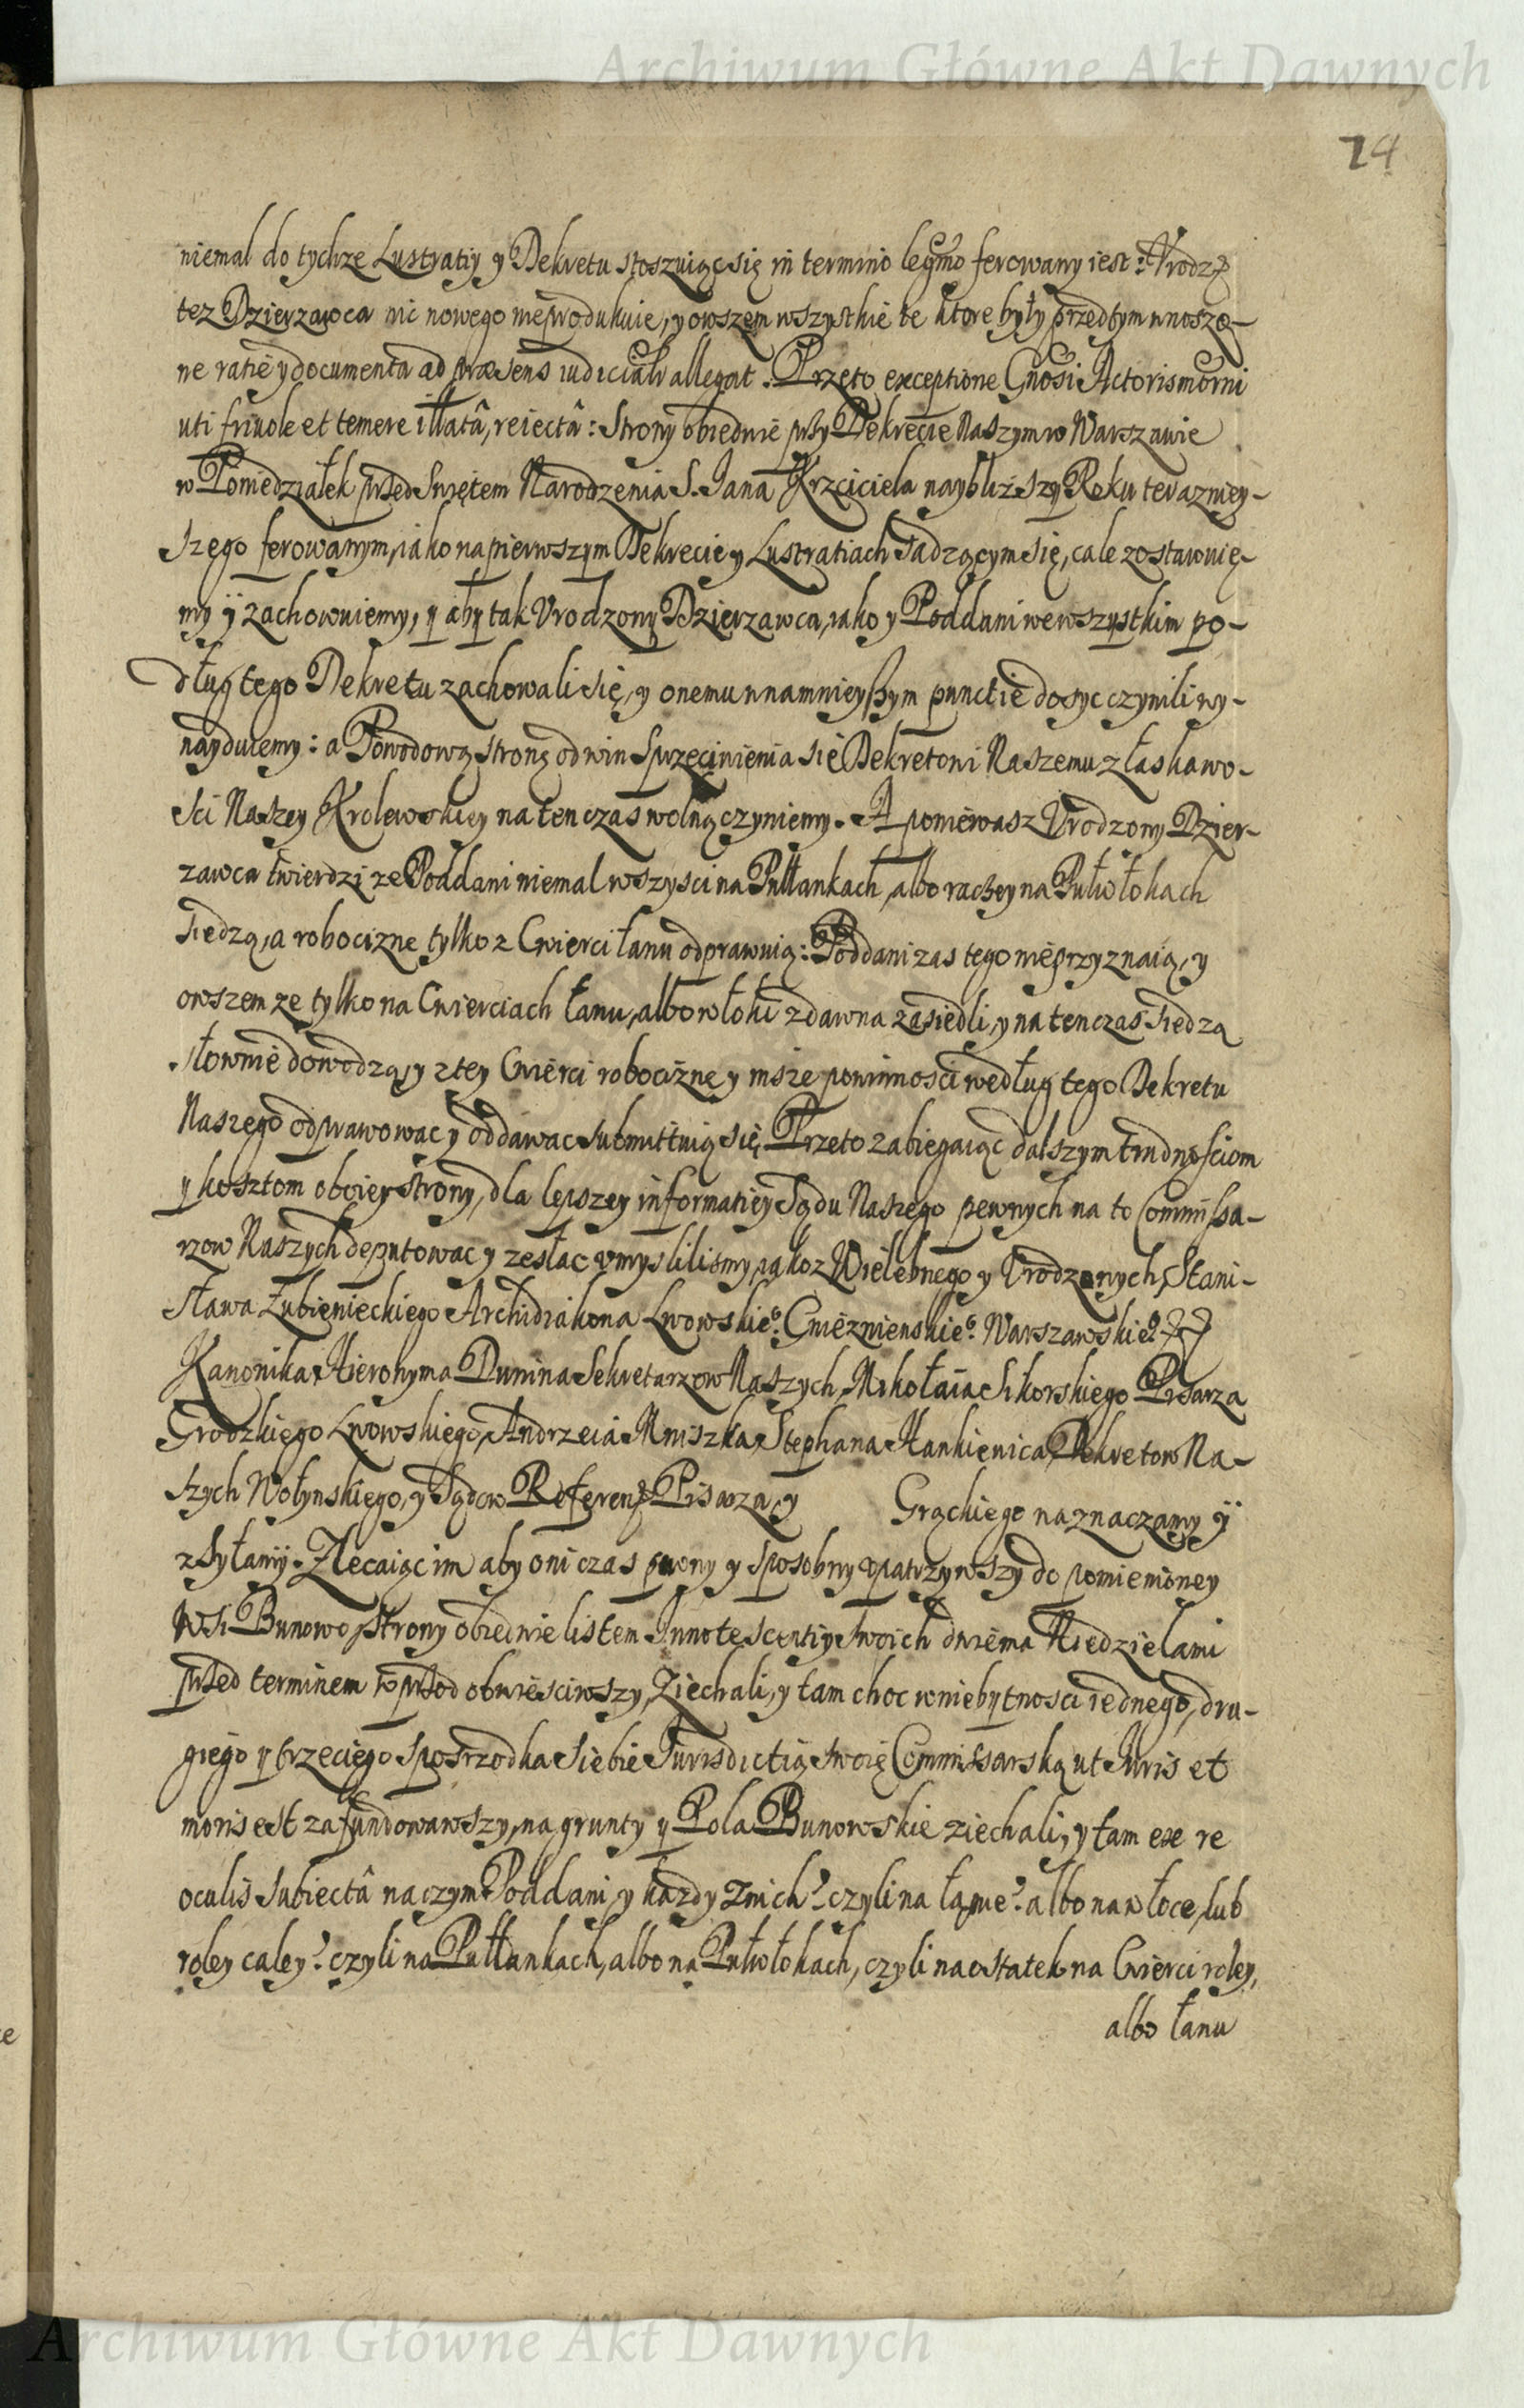 Archiwum Główne Akt Dawnych
74
niemal do tychze Lustratiy y Dekretu stoszuiąc się in termino legmo ferowany iest: Urodz
tez Dzierzawca nic nowego nieprodukuie, y owszem wszystkie te ktore były przedtym wnoszo-
ne ratie y documenta ad præsens iudiciali allegat. Przeto exceptione Gnosi Actoris morni
uti friuole et temere illatâ, reiectâ: Strony obiedwie przy Dekrecie Naszym w Warszawie
w Poniedziałek przed Swiętem Narodzenia S. Jana Krzciciela naybliższy Roku terazniey-
szego ferowanym, iako na pierwszym Dekrecie y Lustratiach sadzącym się, cale zostawuię-
my ÿ zachowuiemy, y aby tak Vrodzony Dzierzawca, iako y Poddani we wszystkim po-
dług tego Dekretu zachowali się, y onemu w namnieyszym punctie dosyc czynili wy-
nayduiemy: a Powodową stronę od win sprzeciwienia się Dekretowi Naszemu z łaskawo-
sci Naszey Krolewskiey na ten czas wolną czyniemy. A poniewasz Vrodzony Dzier-
zawca twierdzi ze Poddani niemal wszysci na Pułłankach, albo raczey na Pułwłokach
siedzą, a robocizne tylko z Cwierci łanu odprawuią: Poddani zas tego nieprzyznaią, y
owszem ze tylko na Cwierciach łanu, albo włoki zdawna zasiedli, y na ten czas siedzą
słownie dowodzą, y z tey Cwierci robociznę y insze powinnosci według tego Dekretu
Naszego odprawowac y oddawac submittuią się. Przeto zabiegaiąc dalszym trudnosciom
y kosztom oboiey strony, dla lepszey informatiey Sądu Naszego pewnych na to Commissa-
rzow Naszych deputowac y zesłac vmyslilismy, iakoz Wielebnego y Vrodzonych, Stani-
sława Łubienieckiego Archidiakona Lwowskie°. Gnieznienskie°. Warszawskie°.
Kanonika, Hieronyma Dunina Sekretarzow Naszych, Mikołaia Sikorskiego Pisarza
Grodzkiego Lwowskiego, Andrzeia Mniszka, Stephana Hankiewica, Dekretow Na-
szych Wołynskiego, y Sądow Referen Pisarza, y Grąckiego naznaczamy ÿ
zsyłamy. Zlecaiąc im aby oni czas pewny y sposobny vpatrzywszy do pomienioney
Wsi Bunowo, strony obiedwie listem Innotescentiy swoich dwiema Niedzielami
przed terminem wprzod obwiesciwszy, Ziechali, y tam choc w niebytnosci iednego, dru-
giego y trzeciego sposrzodka siebie Jurisdictią swoię Commissarską ut Juris et
moris est zafundowawszy, na grunty y Pola Bunowskie ziechali, y tam exe re
oculis subiectâ na czym Poddani y kazdy z nich? czyli na łanie? albo na włoce, lub
roley caley? czyli na Pułłankach, albo na Pułwłokach, czyli naostatek na Cwierci roley,
albo łanu
Archiwum Główne Akt Dawnych